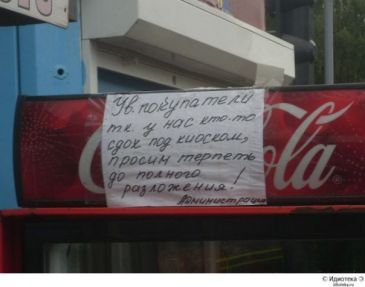 Ув. покупатели
т.к. у нас кто-то
сдох под киоском,
просим терпеть
до полного
разложения!
Администрация
Cola
© Идиотека Э
idioteka.ru